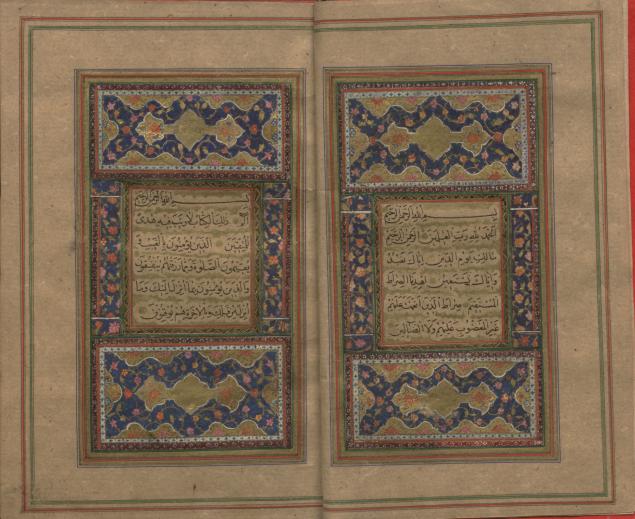 بسم الله الرحمن الرحيم
الحمد لله رب العلمين الرحمن الرحيم
مالك يوم الدين اياك نعبد
واياك نستعين اهدنا الصراط
المستقيم صراط الذين انعمت عليهم
غير المغضوب عليهم ولا الضالين
بسم الله الرحمن الرحيم
الم ذلك الكتاب لا ريب فيه هدى
للمتقين الذين يؤمنون بالغيب
ويقيمون الصلوة ومما رزقناهم ينفقون
والذين يؤمنون بما انزل اليك وما
انزل من قبلك وبالاخرة هم يوقنون